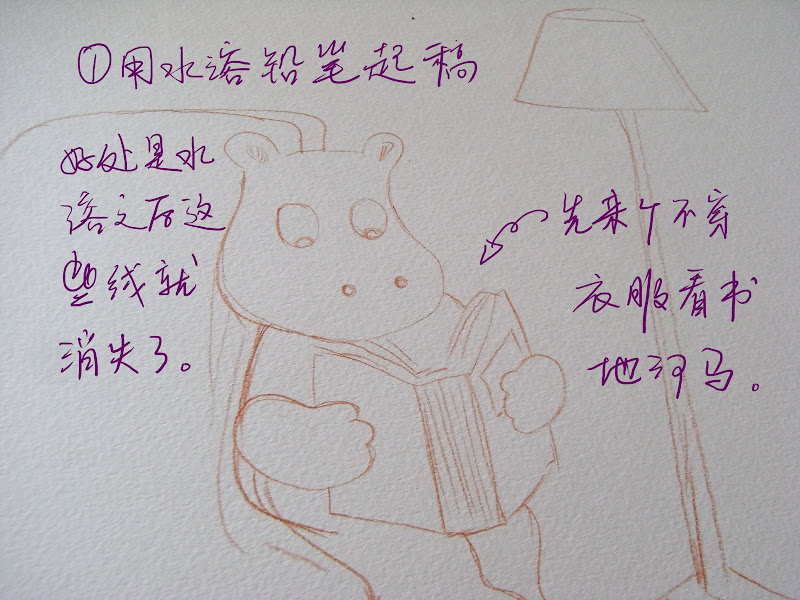 ①用水溶铅笔起稿
好处是水
溶之后这
些线就
消失了。
先来个不穿
衣服看书
地河马。